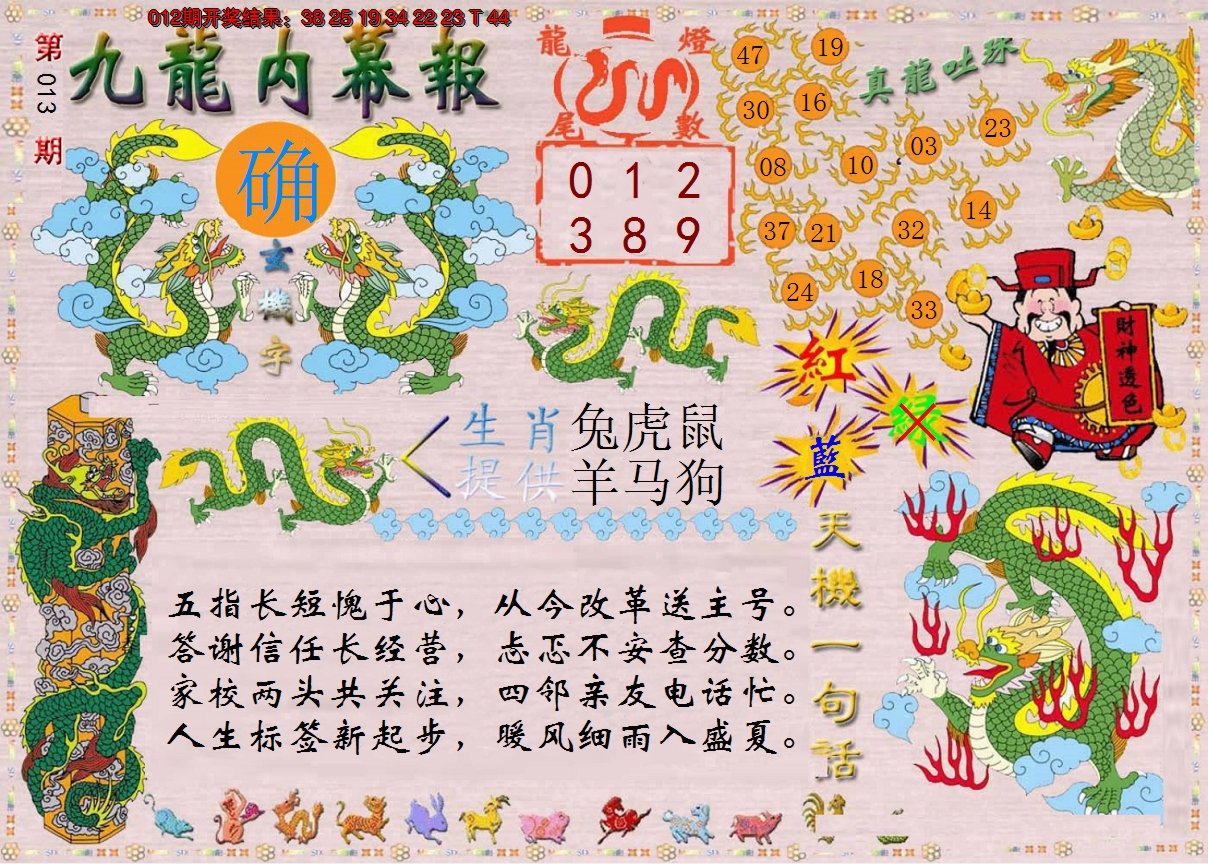 012期开奖结果：38 25 19 34 22 23 T 44
第013期
九龍内幕報
确
玄機字
龍燈
尾數
0 1 2
3 8 9
真龍吐珠
47 19
30 16
03 23
08 10
14
37 21 32
24 18
33
財神透色
紅
绿
藍
生肖 兔虎鼠
提供 羊马狗
天機一句話
五指长短愧于心，从今改革送主号。
答谢信任长经营，忐忑不安查分数。
家校两头共关注，四邻亲友电话忙。
人生标签新起步，暖风细雨入盛夏。